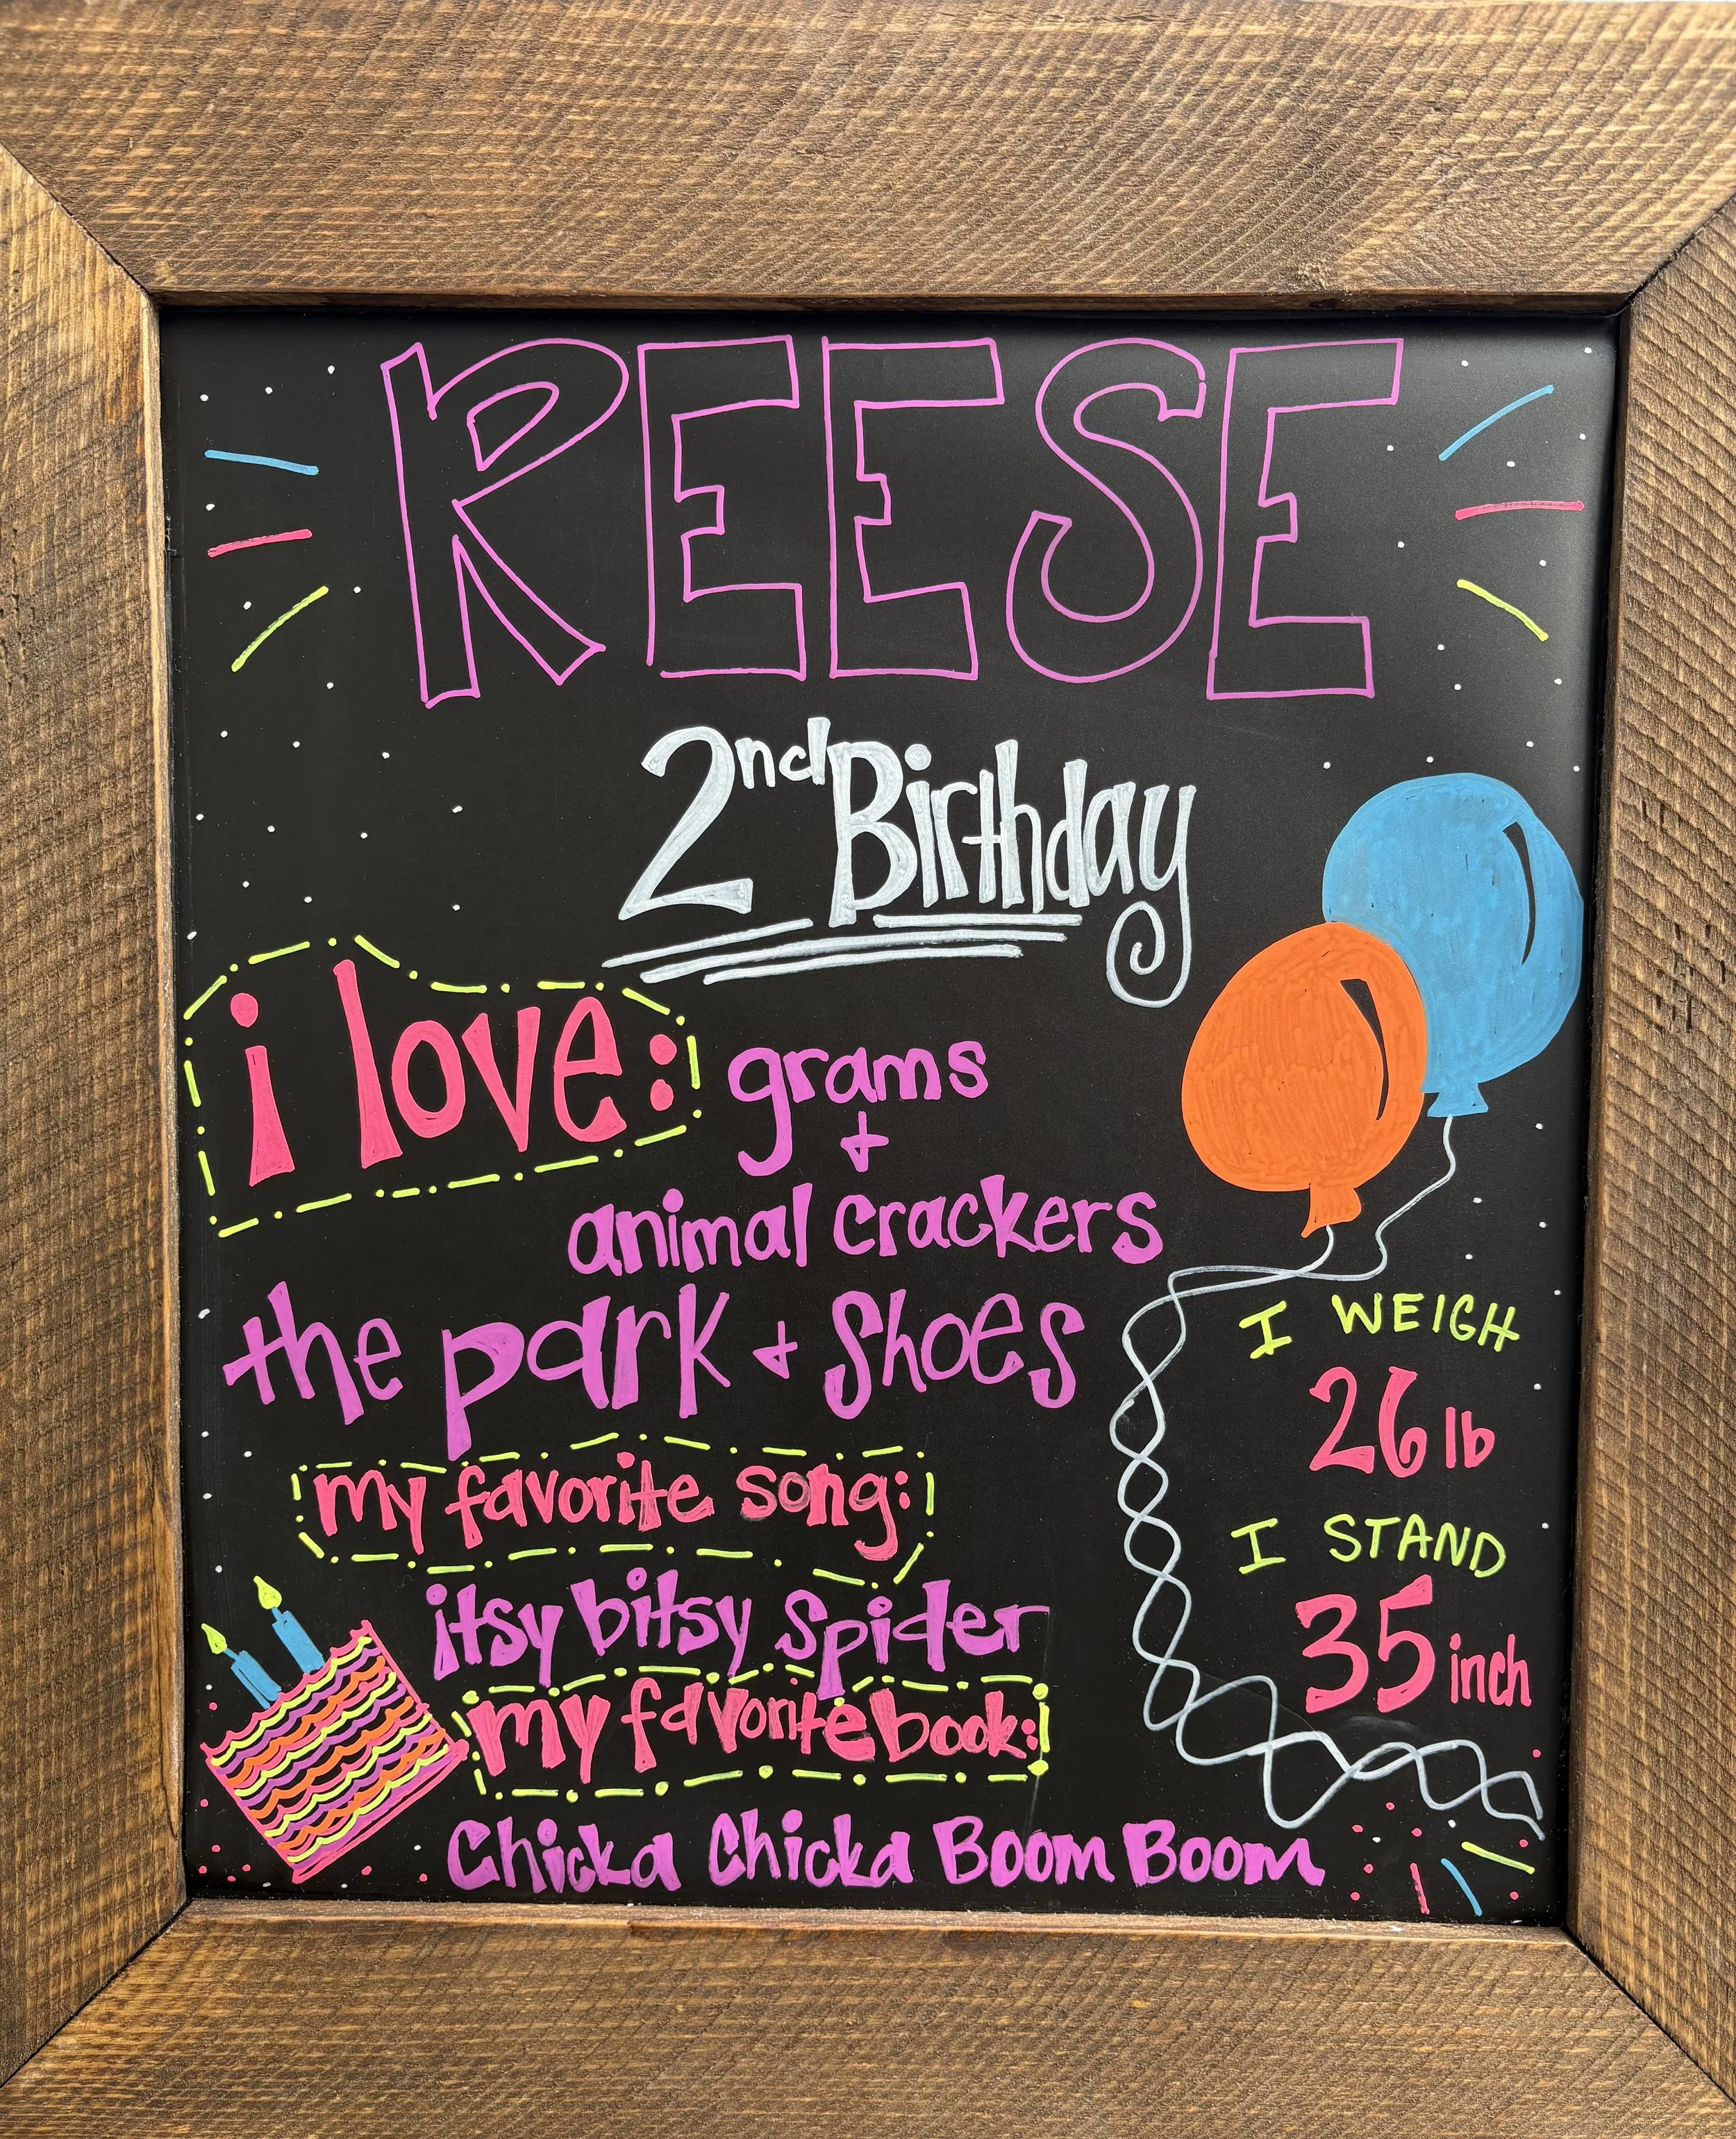 REESE
2nd Birthday
i love: grams
+
animal crackers
the park + shoes
my favorite song:
itsy bitsy spider
my favorite book:
Chicka Chicka Boom Boom
I WEIGH
26 lb
I STAND
35 inch